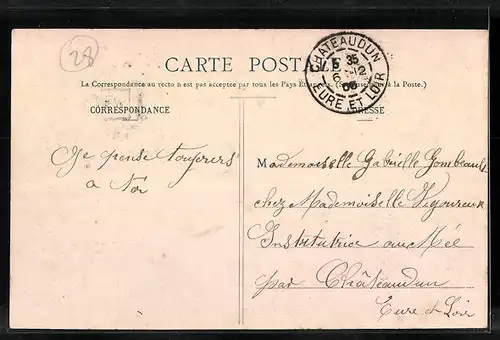 28
CARTE POSTALE
CHATEAUDUN
5 35
6 -12
06
EURE ET LOIR
La Correspondance au recto n est pas acceptée par tous les Pays (à la Poste.)
CORRESPONDANCE
ADRESSE
Je pense toujours
a toi
Mademoiselle Gabrielle Gombeault
chez Mademoiselle Vigoureux
Institutrice au Mée
par Châteaudun
Eure et Loir